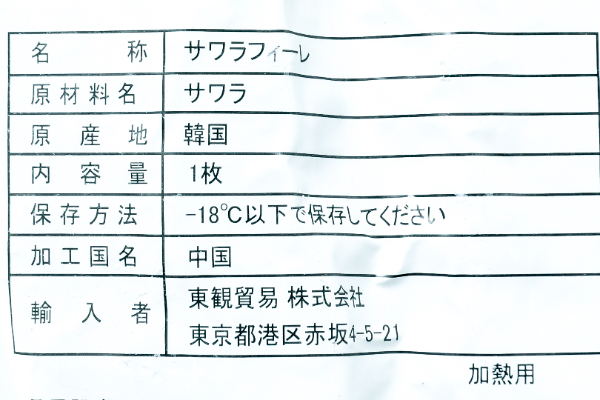 名称 サワラフィーレ
原材料名 サワラ
原産地 韓国
内容量 1枚
保存方法 -18℃以下で保存してください
加工国名 中国
輸入者 東観貿易 株式会社
東京都港区赤坂4-5-21
加熱用